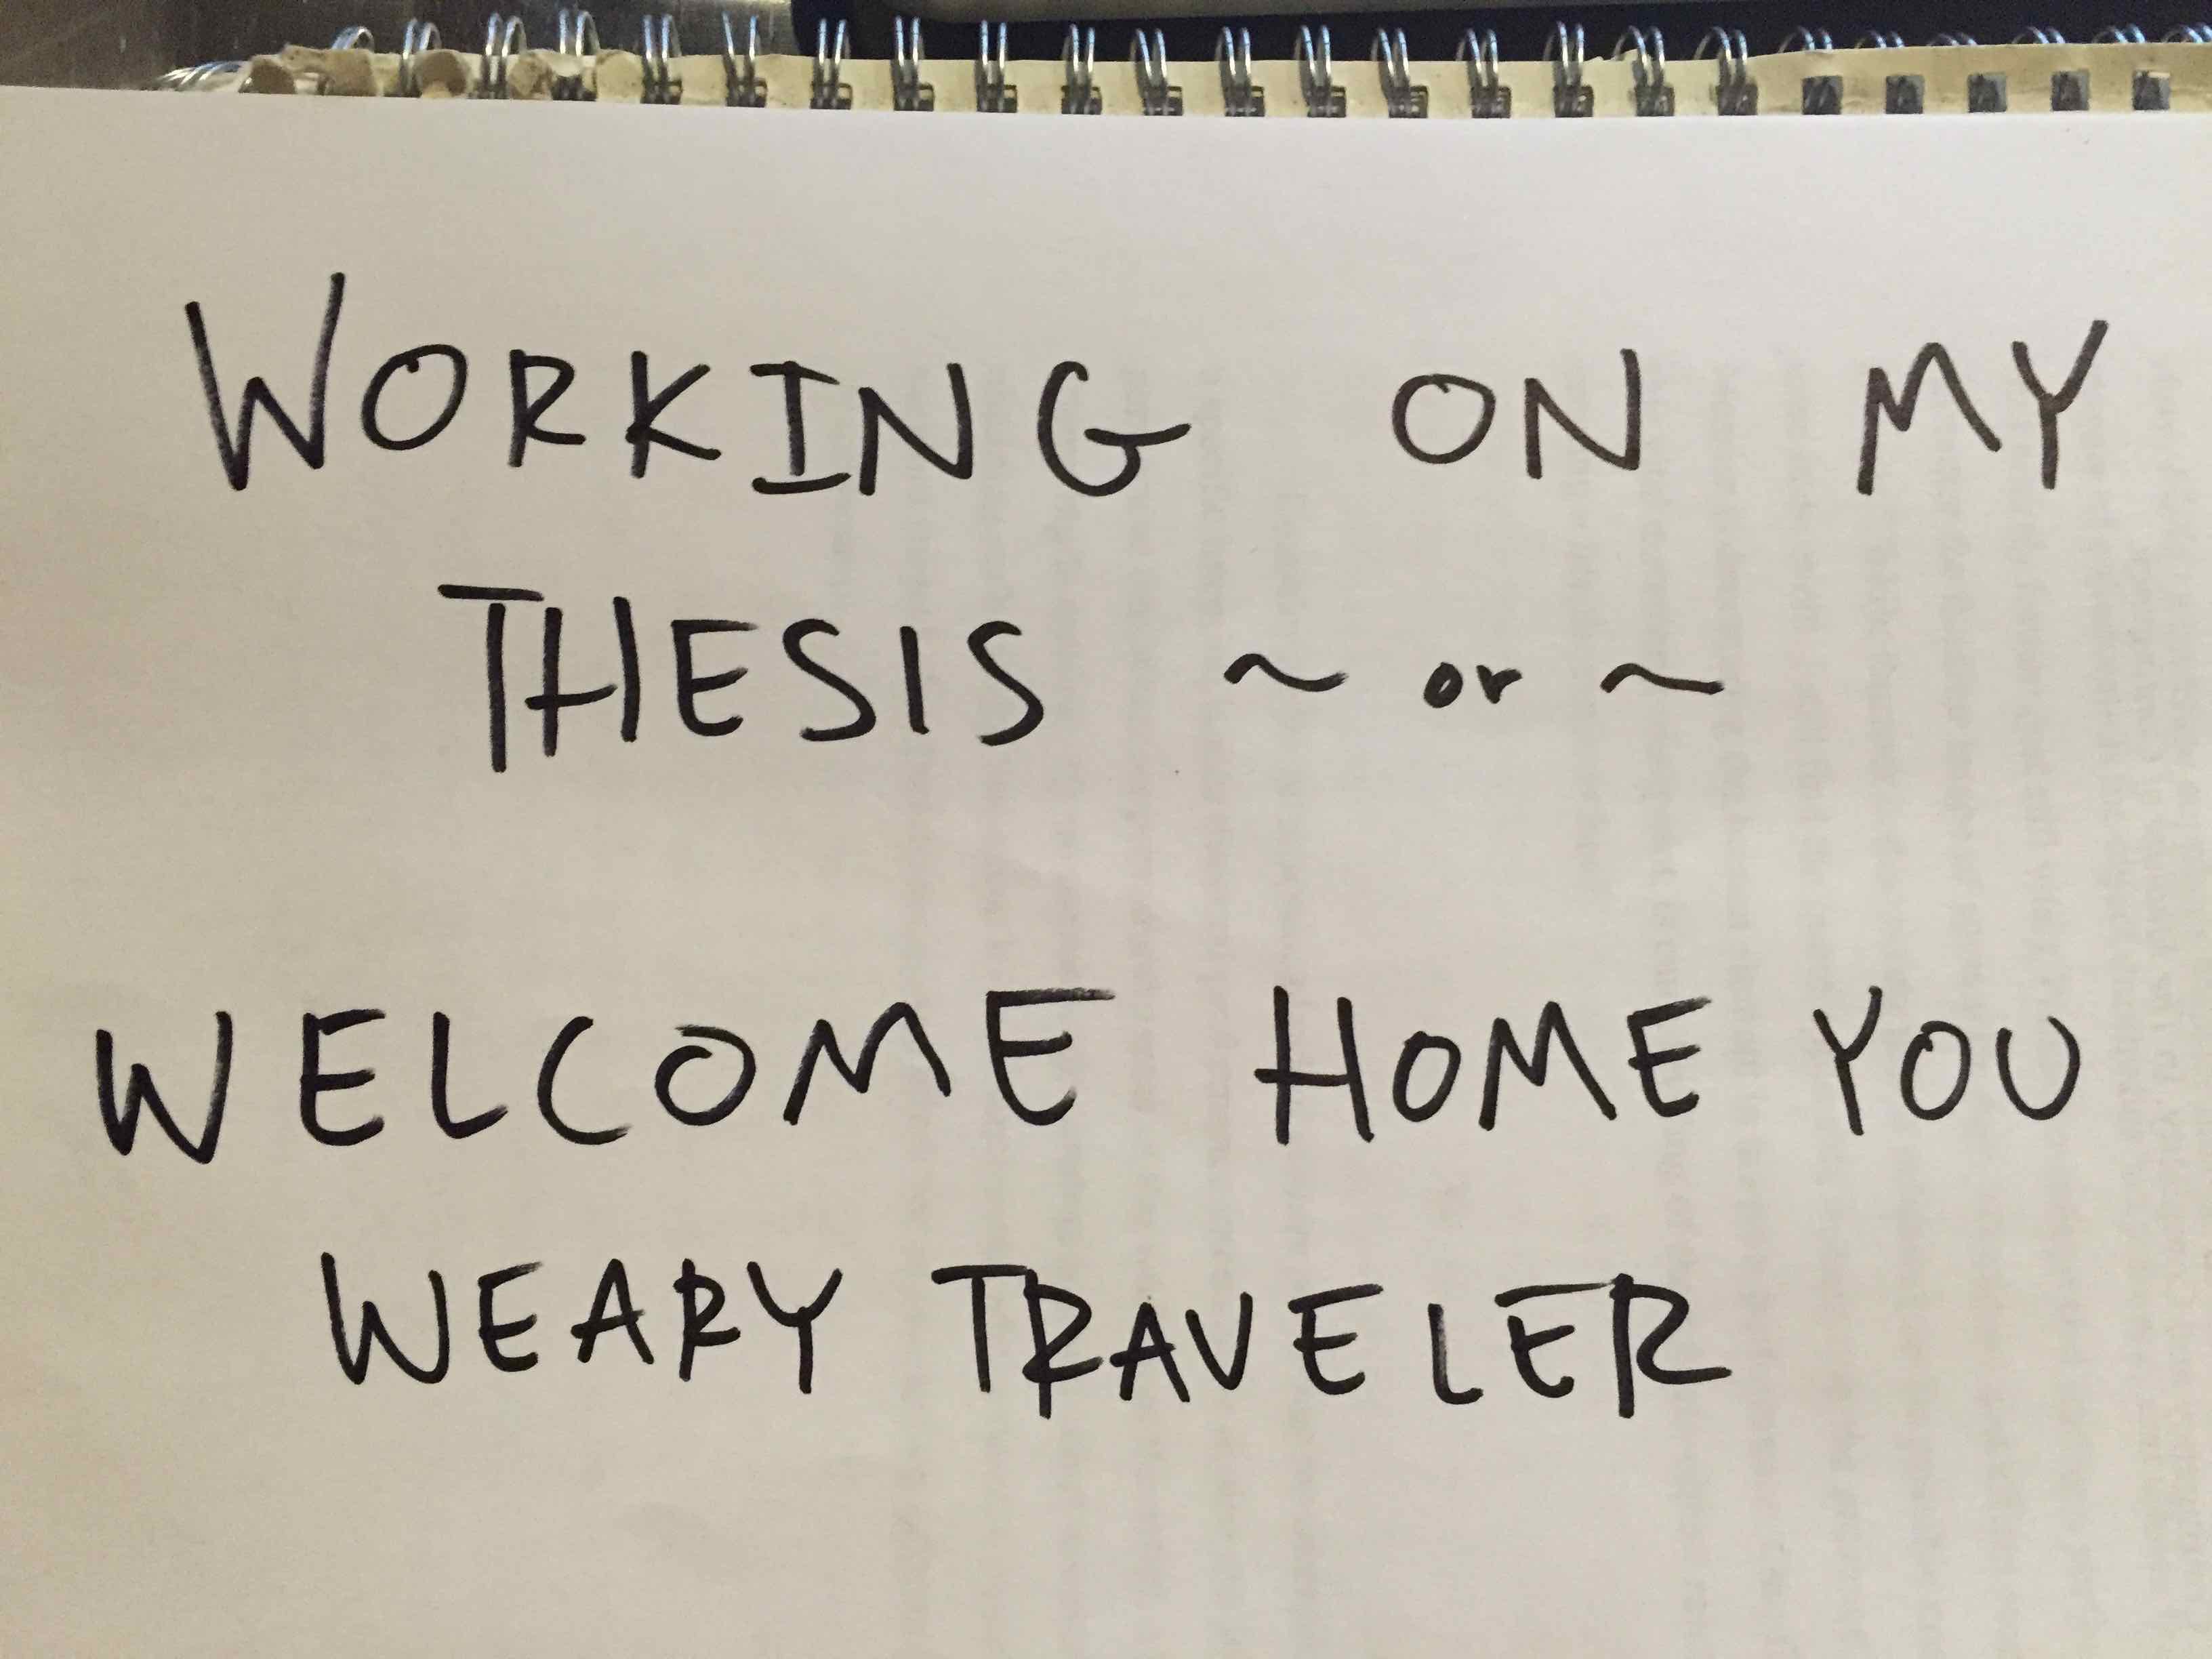 WORKING ON MY
THESIS ~ or ~
WELCOME HOME YOU
WEARY TRAVELER